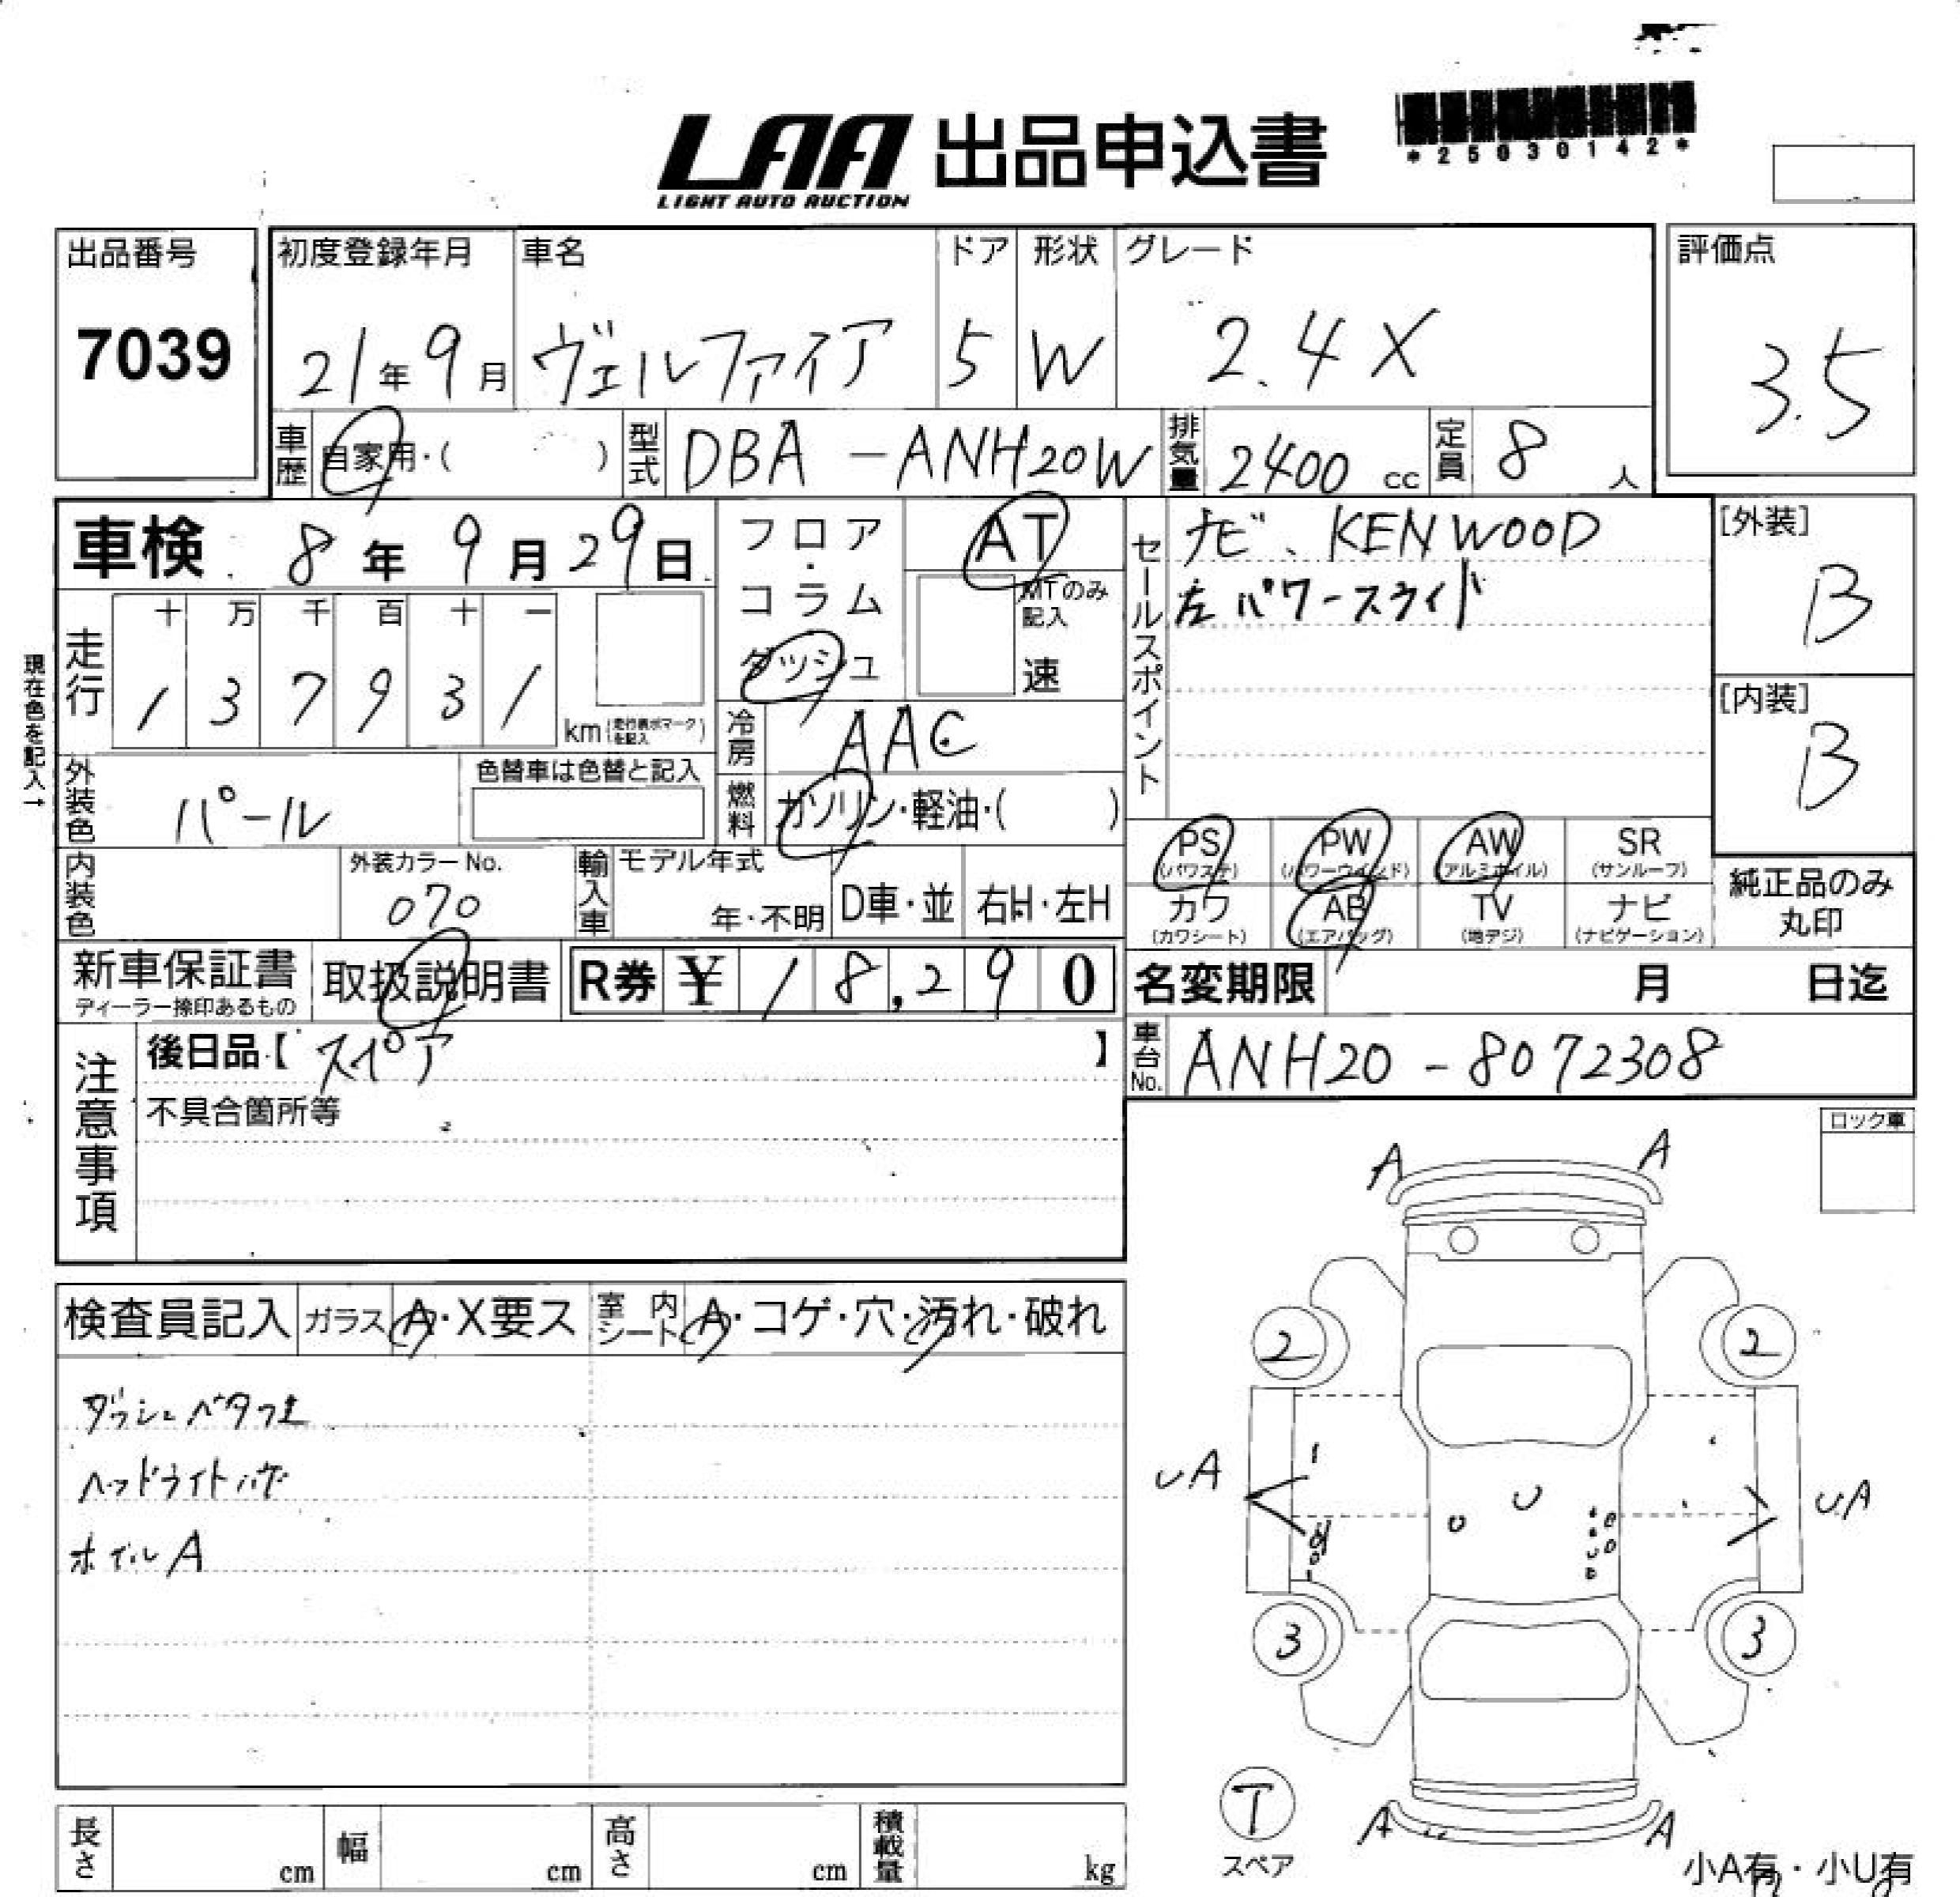 LAA 出品申込書
LIGHT AUTO AUCTION
*25030142*
出品番号
7039
初度登録年月 車名 ドア 形状 グレード
21年9月 ヴェルファイア 5 W 2.4X
評価点
3.5
車歴 自家用・( ) 型式 DBA-ANH20W 排気量 2400 cc 定員 8 人
車検 8年9月29日
フロア・コラム
ダッシュ
AT
MTのみ記入
速
セールスポイント
ナビ、KENWOOD
左パワースライド
[外装]
B
[内装]
B
現在色を記入→
走行 十 万 千 百 十 一
1 3 7 9 3 1 km (走行表示マークを記入)
冷房 AAC
燃料 ガソリン・軽油・( )
外装色 パール 色替車は色替と記入
内装色 外装カラーNo. 070
輸入車 モデル年式 年・不明 D車・並 右H・左H
PS (パワステ) PW (パワーウインド) AW (アルミホイル) SR (サンルーフ)
カワ (カワシート) AB (エアバッグ) TV (地デジ) ナビ (ナビゲーション)
純正品のみ丸印
新車保証書 ディーラー捺印あるもの 取扱説明書 R券 ¥ 18,290
名変期限 月 日迄
車台No. ANH20-8072308
注意事項
後日品【スペア】
不具合箇所等
ロック車
検査員記入 ガラス A・X要ス 室内シート A・コゲ・穴・汚れ・破れ
ダッシュベタつき
ヘッドライトハゲ
ホイルA
A A
2 2
UA U UA
U
3 3
A A
T
スペア
小A有・小U有
長さ cm 幅 cm 高さ cm 積載量 kg